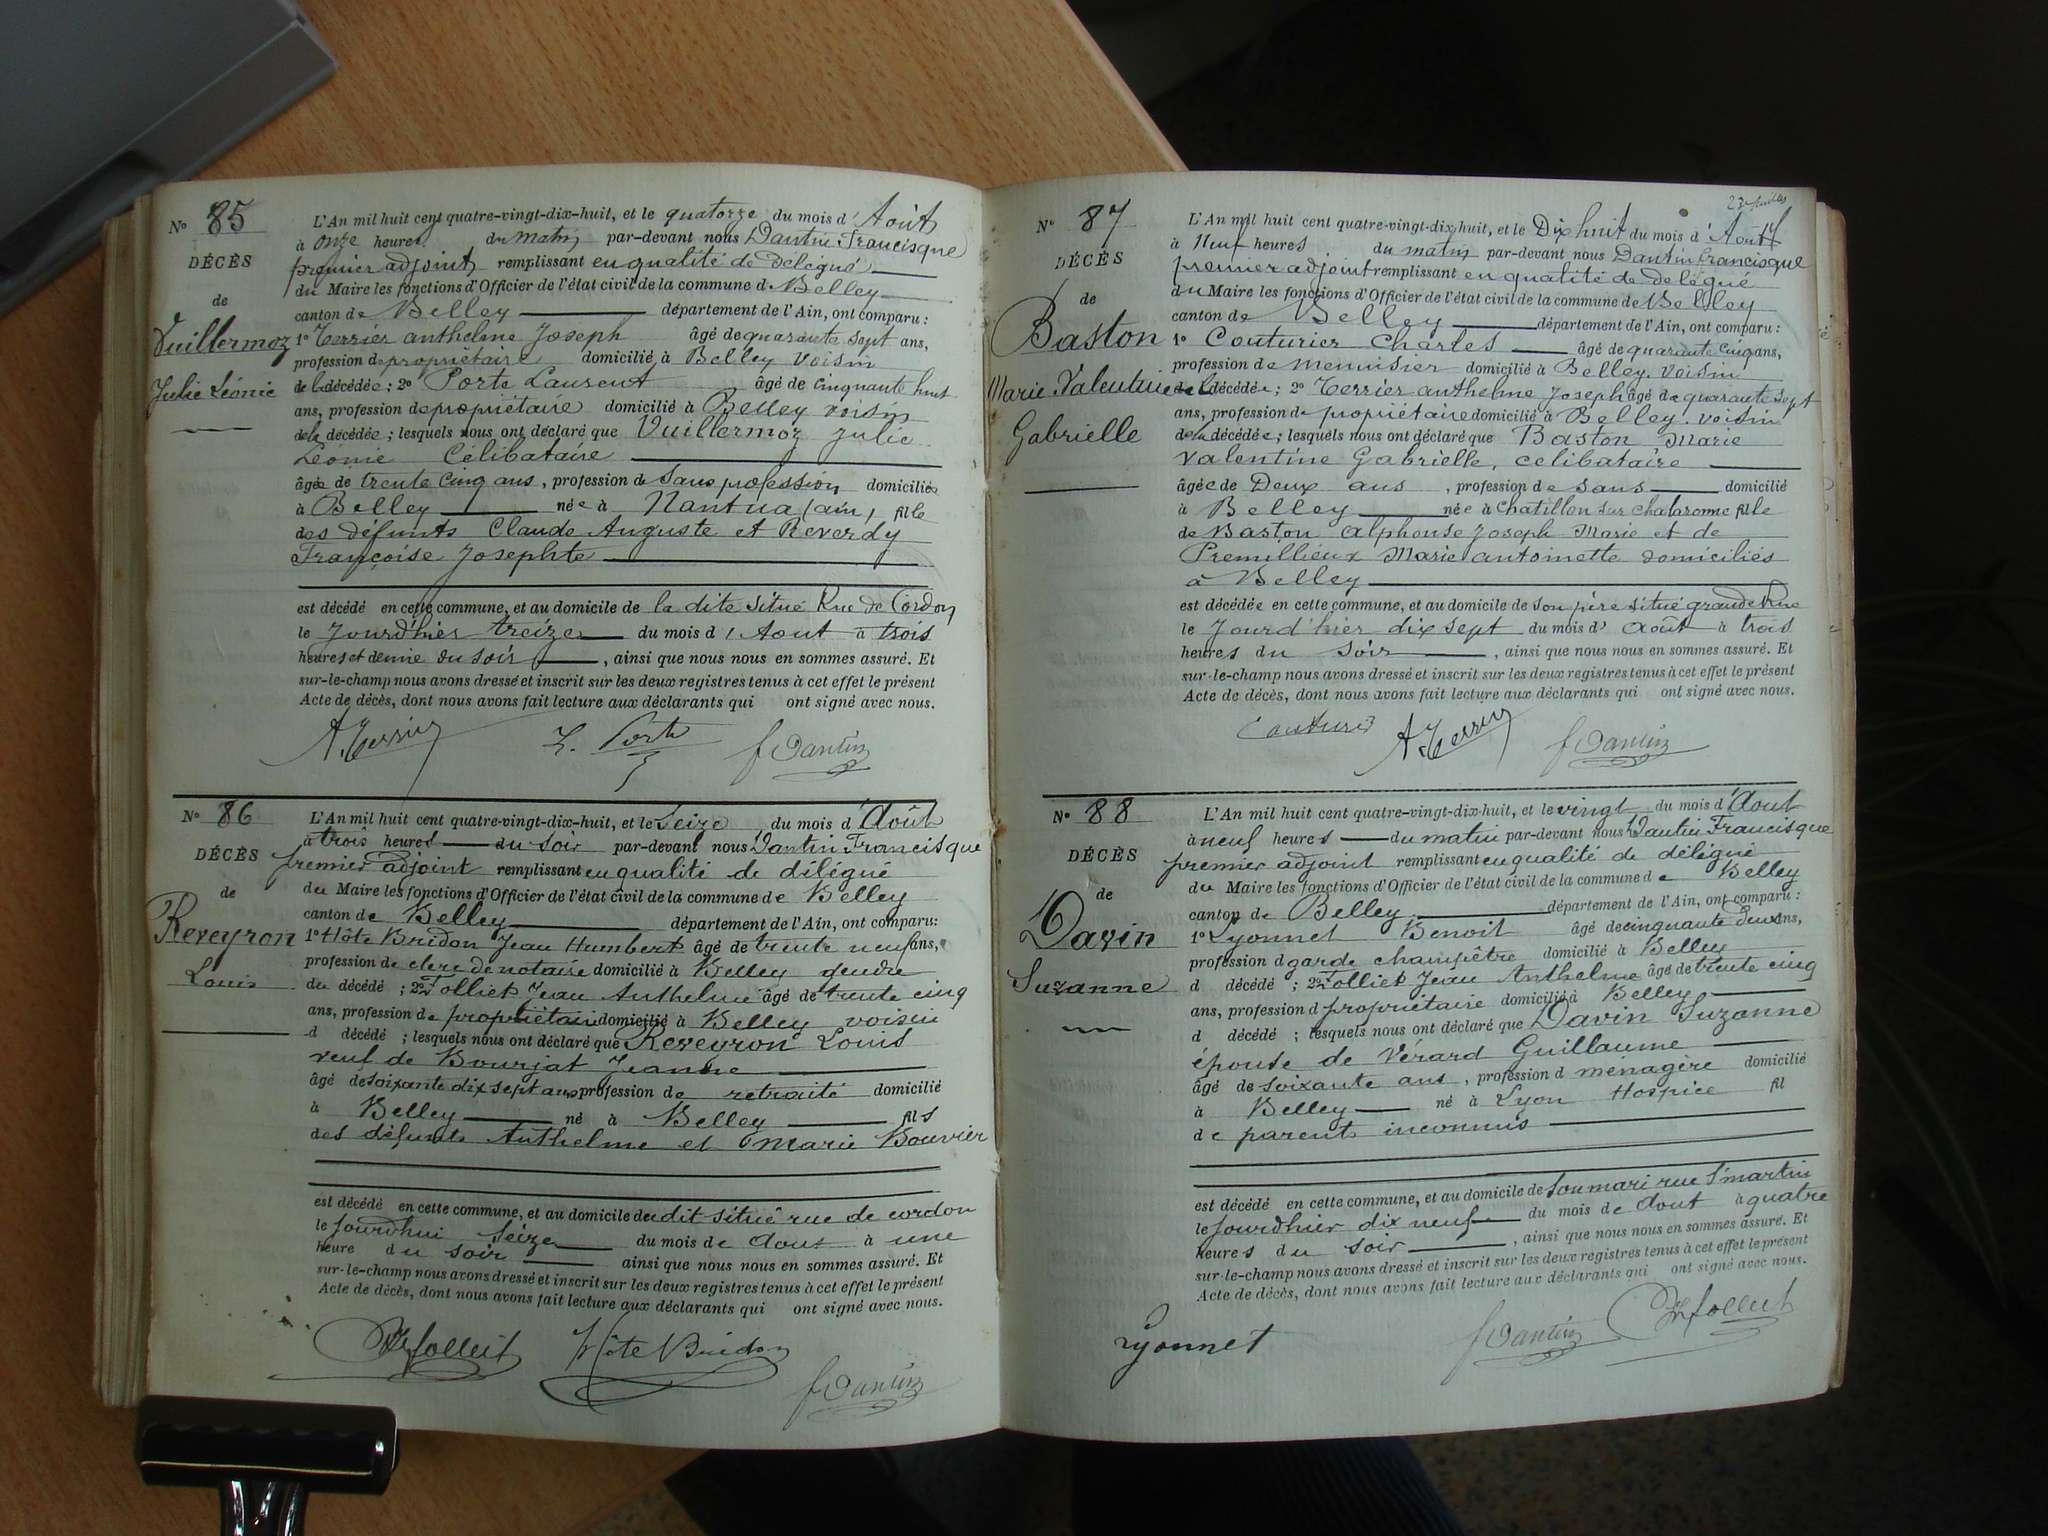 N° 85
DÉCÈS
de
Vuillermoz
Julie Léonie
L'An mil huit cent quatre-vingt-dix-huit, et le quatorze du mois d'Août
à onze heures du matin par-devant nous Dantin Francisque
premier adjoint remplissant en qualité de délégué
du Maire les fonctions d'Officier de l'état civil de la commune d Belley
canton de Belley département de l'Ain, ont comparu :
1° Terrier anthelme Joseph âgé de quarante sept ans,
profession de propriétaire domicilié à Belley voisin
de la décédée ; 2° Porte Laurent âgé de cinquante huit
ans, profession de propriétaire domicilié à Belley voisin
de la décédée ; lesquels nous ont déclaré que Vuillermoz Julie
Léonie Célibataire
âgée de trente cinq ans, profession de Sans profession domiciliée
à Belley née à Nantua (ain) fille
des défunts Claude Auguste et Reverdy
Françoise Josephte
est décédé en cette commune, et au domicile de la dite situé Rue de Cordon
le Jourd'hier treize du mois d'Aout à trois
heures et demie du soir, ainsi que nous nous en sommes assuré. Et
sur-le-champ nous avons dressé et inscrit sur les deux registres tenus à cet effet le présent
Acte de décès, dont nous avons fait lecture aux déclarants qui ont signé avec nous.
A. Terrier L. Porte f Dantin
N° 86
DÉCÈS
de
Reveyron
Louis
L'An mil huit cent quatre-vingt-dix-huit, et le Seize du mois d'Août
à trois heures du soir par-devant nous Dantin Francisque
premier adjoint remplissant en qualité de délégué
du Maire les fonctions d'Officier de l'état civil de la commune de Belley
canton de Belley département de l'Ain, ont comparu :
1° Hôte Bridon Jean Humbert âgé de trente neuf ans,
profession de clerc de notaire domicilié à Belley gendre
du décédé ; 2° Folliet Jean Anthelme âgé de trente cinq
ans, profession de propriétaire domicilié à Belley voisin
d décédé ; lesquels nous ont déclaré que Reveyron Louis
veuf de Bourjat Jeanne
âgé de soixante dix sept ans profession de retraité domicilié
à Belley né à Belley fils
des défunts Anthelme et Marie Bouvier
est décédé en cette commune, et au domicile du dit situé rue de cordon
le Jourdhui Seize du mois de aout à une
heure du soir ainsi que nous nous en sommes assuré. Et
sur-le-champ nous avons dressé et inscrit sur les deux registres tenus à cet effet le présent
Acte de décès, dont nous avons fait lecture aux déclarants qui ont signé avec nous.
folliet Hôte Bridon f Dantin
N° 87
DÉCÈS
de
Baston
Marie Valentine
Gabrielle
L'An mil huit cent quatre-vingt-dix-huit, et le Dix huit du mois d'Août
à Neuf heures du matin par-devant nous Dantin francisque
premier adjoint remplissant en qualité de délégué
du Maire les fonctions d'Officier de l'état civil de la commune de Belley
canton de Belley département de l'Ain, ont comparu :
1° Couturier Charles âgé de quarante cinq ans,
profession de menuisier domicilié à Belley. voisin
de la décédée ; 2° Terrier anthelme Joseph âgé de quarante sept
ans, profession de propriétaire domicilié à Belley. voisin
de la décédée ; lesquels nous ont déclaré que Baston Marie
Valentine Gabrielle, célibataire
âgée de Deux ans, profession de sans domicilié
à Belley née à Chatillon sur Chalaronne fille
de Baston Alphonse Joseph Marie et de
Premillieux Marie antoinette domiciliés
à Belley
est décédée en cette commune, et au domicile de son père situé grande Rue
le Jourd'hier dix sept du mois d'août à trois
heures du soir, ainsi que nous nous en sommes assuré. Et
sur-le-champ nous avons dressé et inscrit sur les deux registres tenus à cet effet le présent
Acte de décès, dont nous avons fait lecture aux déclarants qui ont signé avec nous.
Couturier A. Terrier f Dantin
N° 88
DÉCÈS
de
Davin
Suzanne
L'An mil huit cent quatre-vingt-dix-huit, et le vingt du mois d'Aout
à neuf heures du matin par-devant nous Dantin Francisque
premier adjoint remplissant en qualité de délégué
du Maire les fonctions d'Officier de l'état civil de la commune de Belley
canton de Belley département de l'Ain, ont comparu :
1° Lyonnet Benoit âgé de cinquante deux ans,
profession d garde champêtre domicilié à Belley
d décédé ; 2° Folliet Jean Anthelme âgé de trente cinq
ans, profession d propriétaire domicilié à Belley
d décédé ; lesquels nous ont déclaré que Davin Suzanne
épouse de Vérard Guillaume
âgé de soixante ans, profession d ménagère domicilié
à Belley né à Lyon Hospice fil
de parents inconnus
est décédé en cette commune, et au domicile de son mari rue St martin
le Jourdhier dix neuf du mois de Aout à quatre
heures du soir, ainsi que nous nous en sommes assuré. Et
sur-le-champ nous avons dressé et inscrit sur les deux registres tenus à cet effet le présent
Acte de décès, dont nous avons fait lecture aux déclarants qui ont signé avec nous.
Lyonnet f Dantin folliet